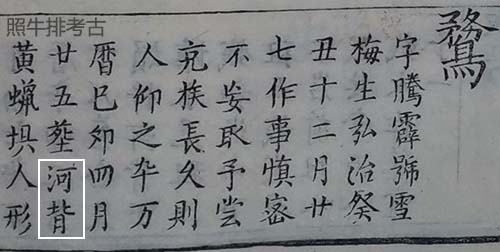 照牛排考古
鶩
字騰霞號雪
梅生弘治癸
丑十二月廿
七作事慎密
不妄取予嘗
充族長久則
人仰之卒万
暦己夘四月
廿五塟河背
黃蠟垻人形